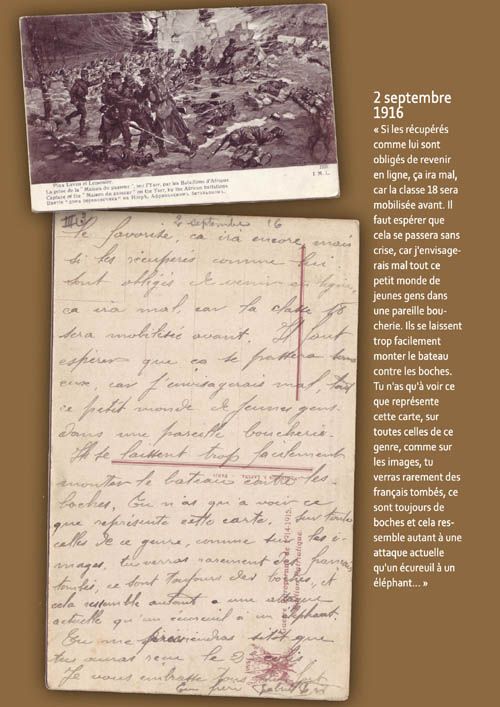 Pinx Leven et Lemonier.
La prise de la "Maison du passeur", sur l'Yser, par les Bataillons d'Afrique
Capture of the "Maison du passeur" on the Yser, by the African battalions
I. M. L.
2 septembre 16
le favorise, ça ira encore, mais
si les récupérés comme lui
sont obligés de revenir en ligne,
ça ira mal, car la classe 18
sera mobilisée avant. Il faut
espérer que ça se passera sans
car j'envisagerais mal, tout
ce petit monde de jeunes gens
dans une pareille boucherie.
Ils se laissent trop facilement
monter le bateau contre les
boches. Tu n'as qu'à voir ce
que représente cette carte. Sur toutes
celles de ce genre, comme sur les i-
mages, tu verras rarement des français
tombés, ce sont toujours des boches, et
cela ressemble autant à une attaque
actuelle qu'un écureuil à un éléphant.
Tu me préviendras sitôt que
tu auras reçu le 2e colis
Je vous embrasse tous
2 septembre
1916
« Si les récupérés
comme lui sont
obligés de revenir
en ligne, ça ira mal,
car la classe 18 sera
mobilisée avant. Il
faut espérer que
cela se passera sans
crise, car j'envisage-
rais mal tout ce
petit monde de
jeunes gens dans
une pareille bou-
cherie. Ils se laissent
trop facilement
monter le bateau
contre les boches.
Tu n'as qu'à voir ce
que représente
cette carte, sur
toutes celles de ce
genre, comme sur
les images, tu
verras rarement des
français tombés, ce
sont toujours de
boches et cela res-
semble autant à une
attaque actuelle
qu'un écureuil à un
éléphant... »